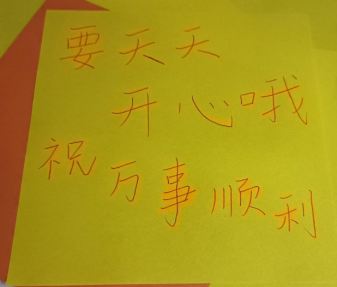 要天天
开心哦
祝万事顺利